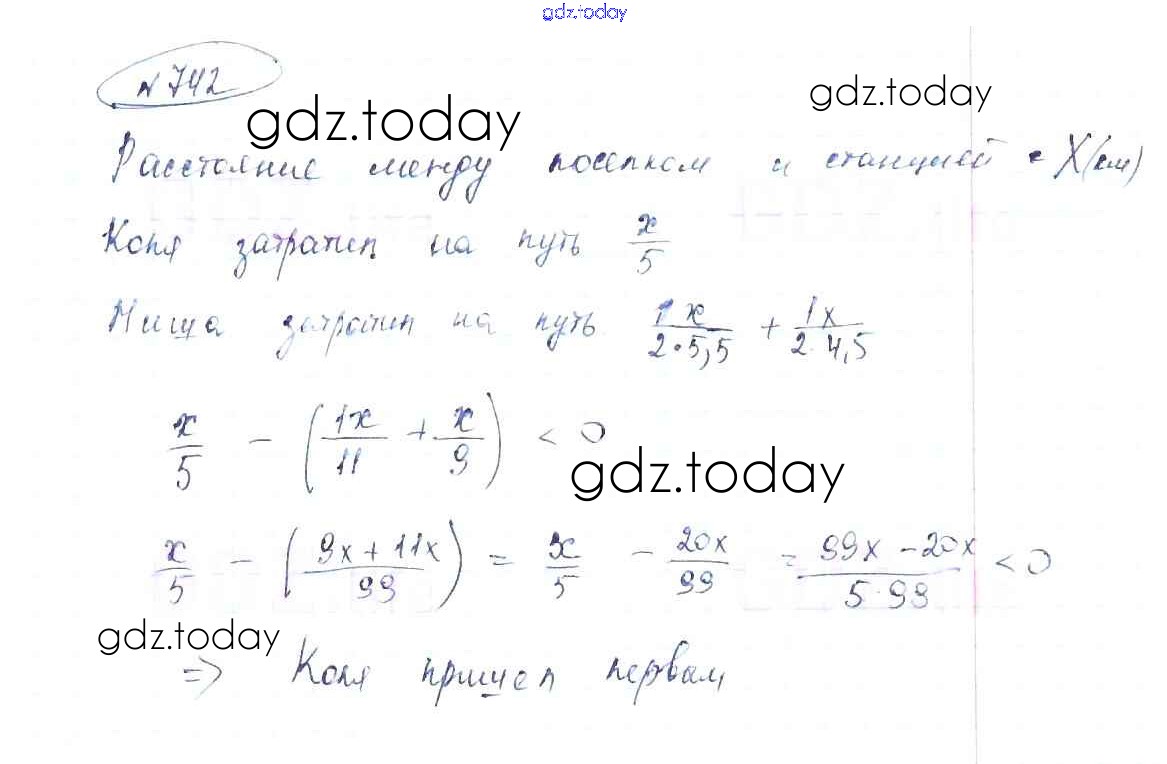 gdz.today
№ 742
gdz.today
gdz.today
Расстояние между поселком и станцией - X(км)
Коля затратил на путь x/5
Миша затратил на путь 1x/(2·5,5) + 1x/(2·4,5)
x/5 - (1x/11 + x/9) < 0
gdz.today
x/5 - ((9x + 11x)/99) = x/5 - 20x/99 = (99x - 20x)/(5·99) < 0
gdz.today
=> Коля пришел первым